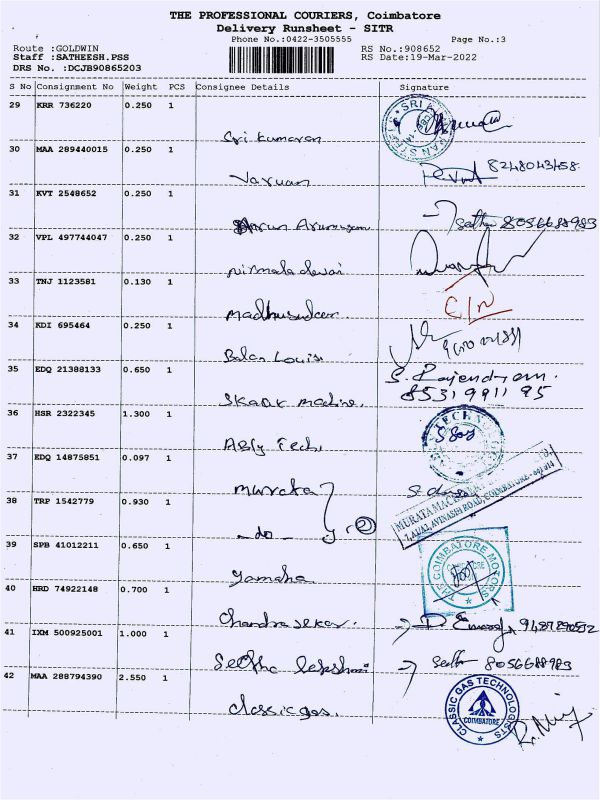 THE PROFESSIONAL COURIERS, Coimbatore
Delivery Runsheet - SITR
Phone No.:0422-3505555 Page No.:3
Route :GOLDWIN RS No.:908652
Staff :SATHEESH.PSS RS Date:19-Mar-2022
DRS No. :DCJB90865203
S No Consignment No Weight PCS Consignee Details Signature
29 KRR 736220 0.250 1
Sri kumaran
30 MAA 289440015 0.250 1
Varuan 8248043158
31 KVT 2548652 0.250 1
Arun Arumugam Sathu 8056688983
32 VPL 497744047 0.250 1
nirmala devai
33 TNJ 1123581 0.130 1
madhusudan C/N
34 KDI 695464 0.250 1
Balan Louise
35 EDQ 21388133 0.650 1 S. Rajendran.
SKANK machine. 8531991195
36 HSR 2322345 1.300 1
ABly Tech
37 EDQ 14875851 0.097 1
murata
MURATA MACHINERY
AVINASHI ROAD, COIMBATORE - 641 014
38 TRP 1542779 0.930 1
-do- 2
39 SPB 41012211 0.650 1
yamaha THE COIMBATORE MOTORS
40 HRD 74922148 0.700 1
Chandra sekar.
41 IXM 500925001 1.000 1
Seetha lakshmi 8056688983
42 MAA 288794390 2.550 1
classic gas. CLASSIC GAS TECHNOLOGISTS
COIMBATORE